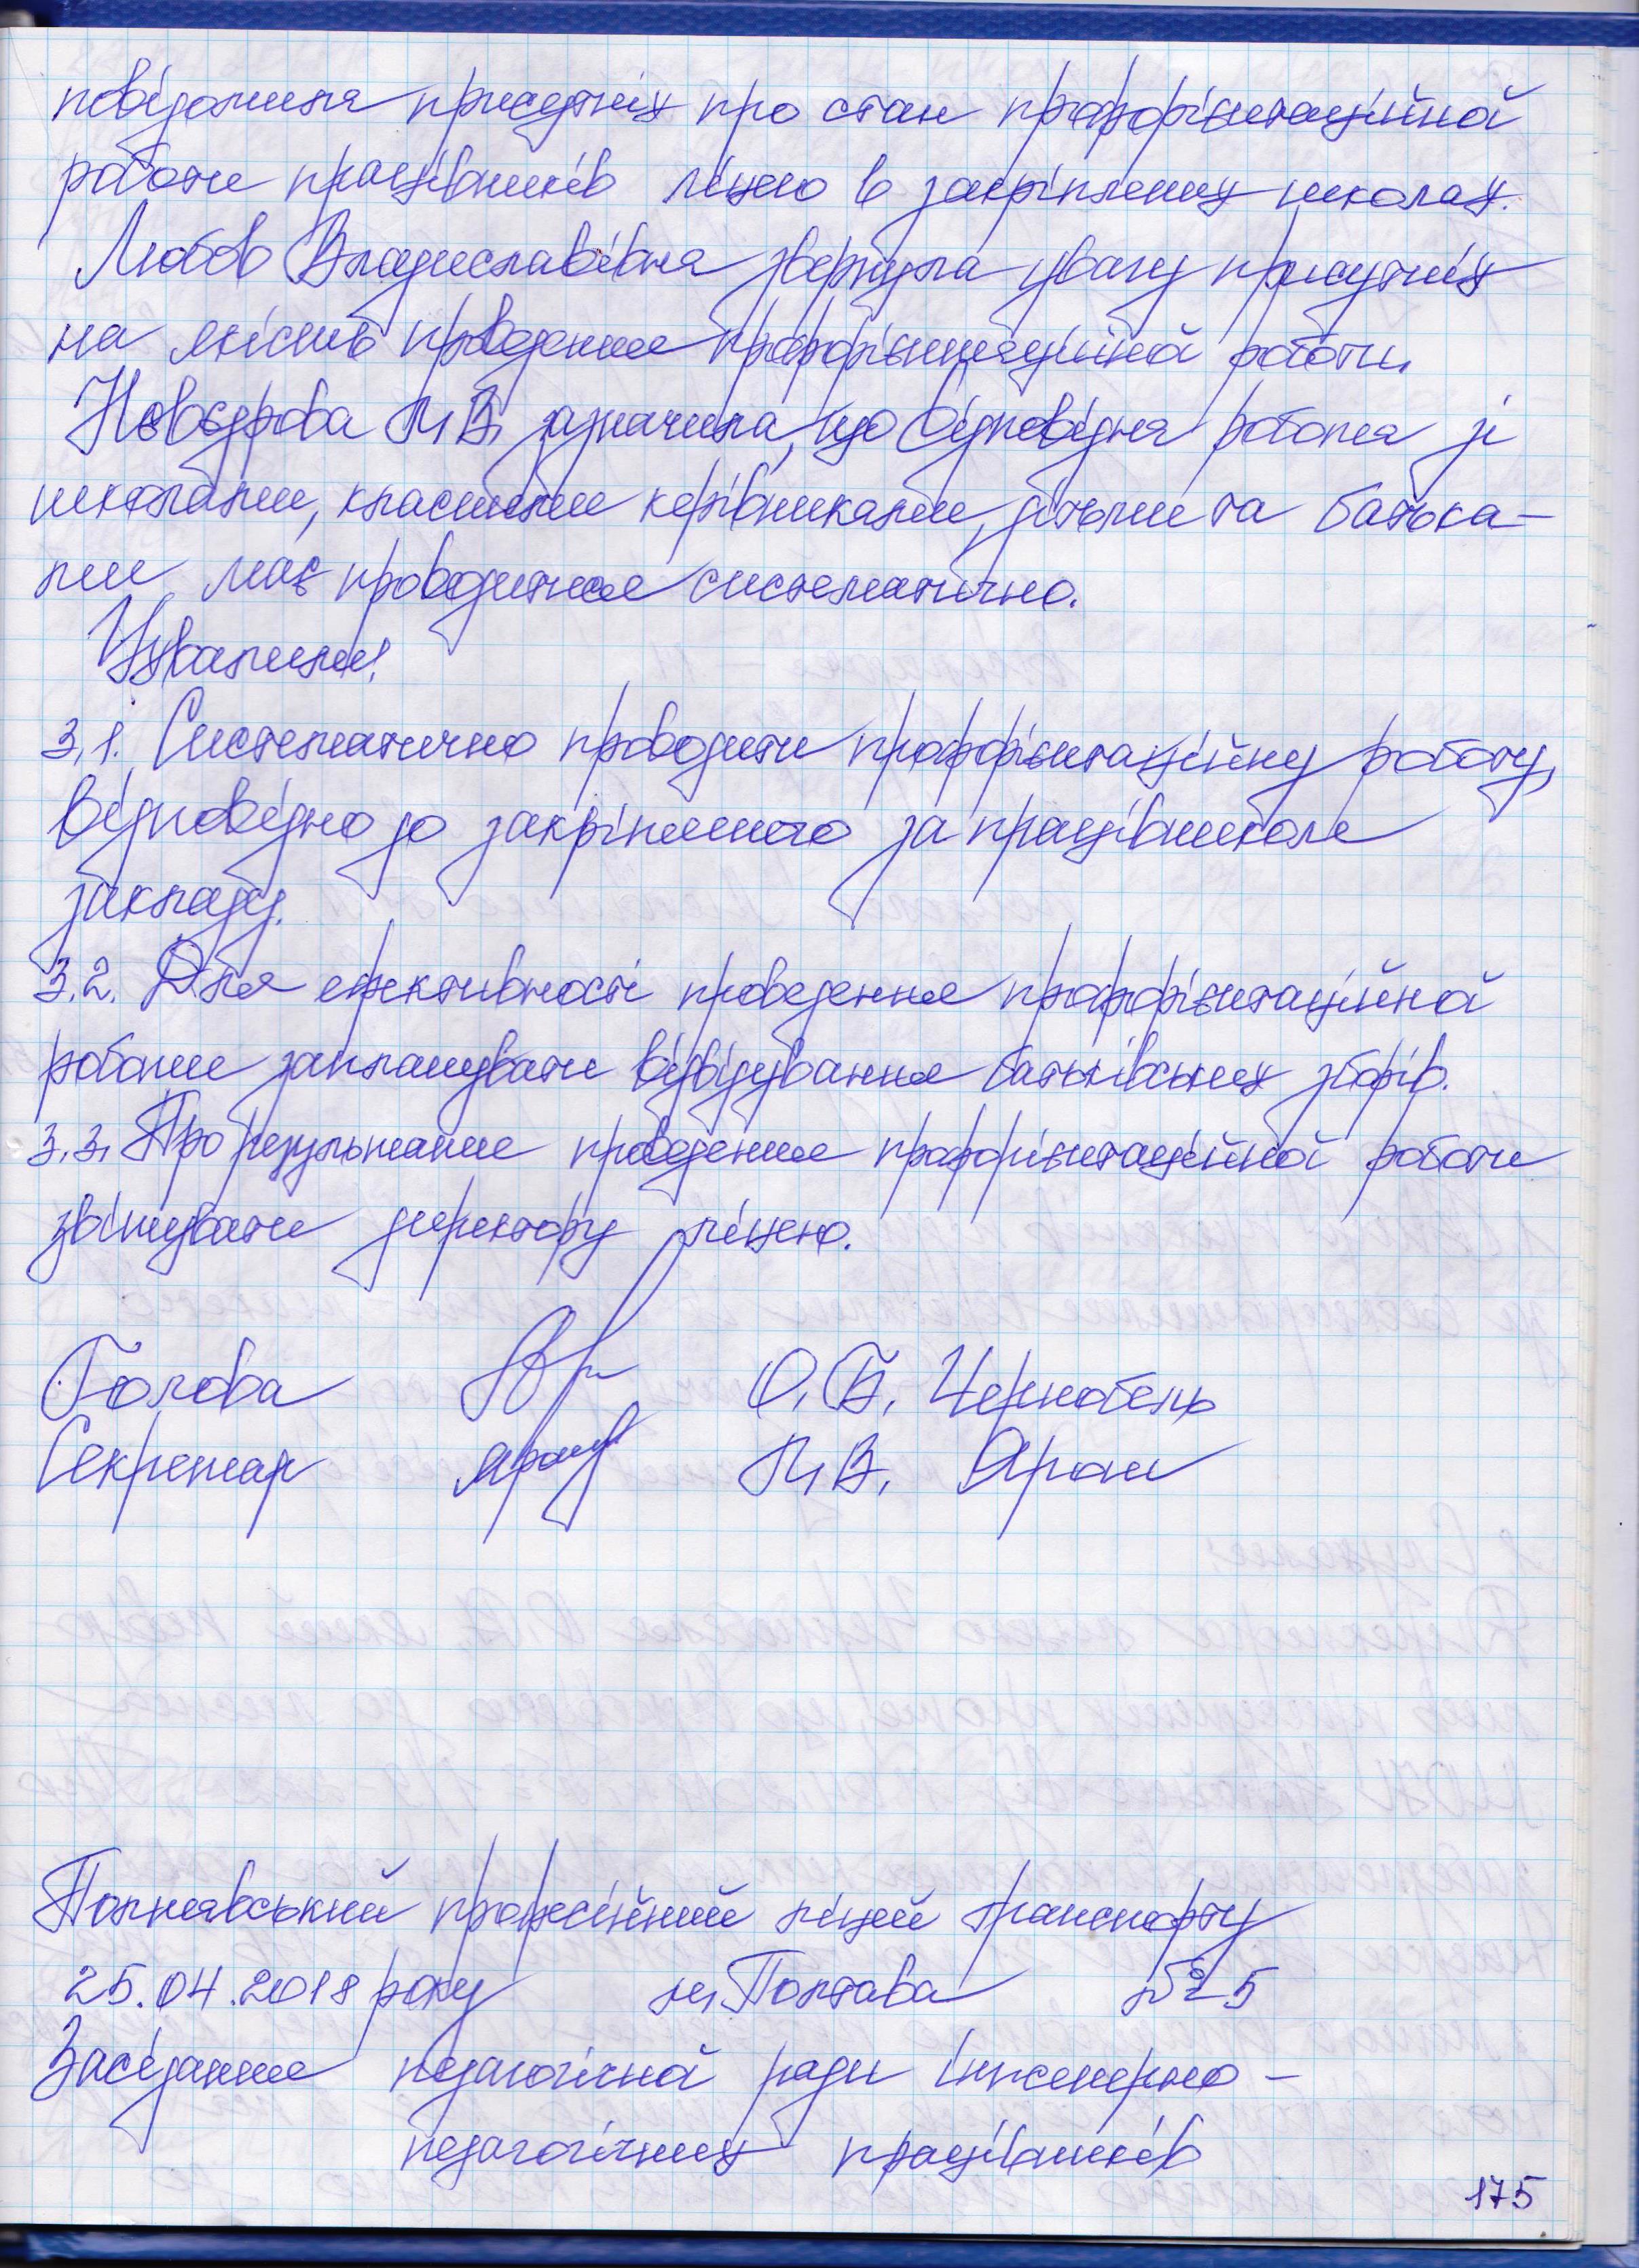 повідомила присутніх про стан профорієнтаційної
роботи працівників ліцею в закріплених школах.
Любов Владиславівна звернула увагу присутніх
на якість проведення профорієнтаційної роботи.
зазначила, що відповідна робота зі
школами, класними керівниками, дітьми та батька-
ми має проводитися систематично.
Ухвалили:
3.1. Систематично проводити профорієнтаційну роботу,
відповідно до закріпленого за працівником
закладу.
3.2. Для ефективності проведення профорієнтаційної
роботи запланувати відвідування батьківських зборів.
3.3. Про результати проведення профорієнтаційної роботи
звітувати директору ліцею.
Голова О.В. Чернобель
Секретар Л.В. Яран
Полтавський професійний ліцей транспорту
25.04.2018 року м. Полтава №5
Засідання педагогічної ради інженерно-
педагогічних працівників
175